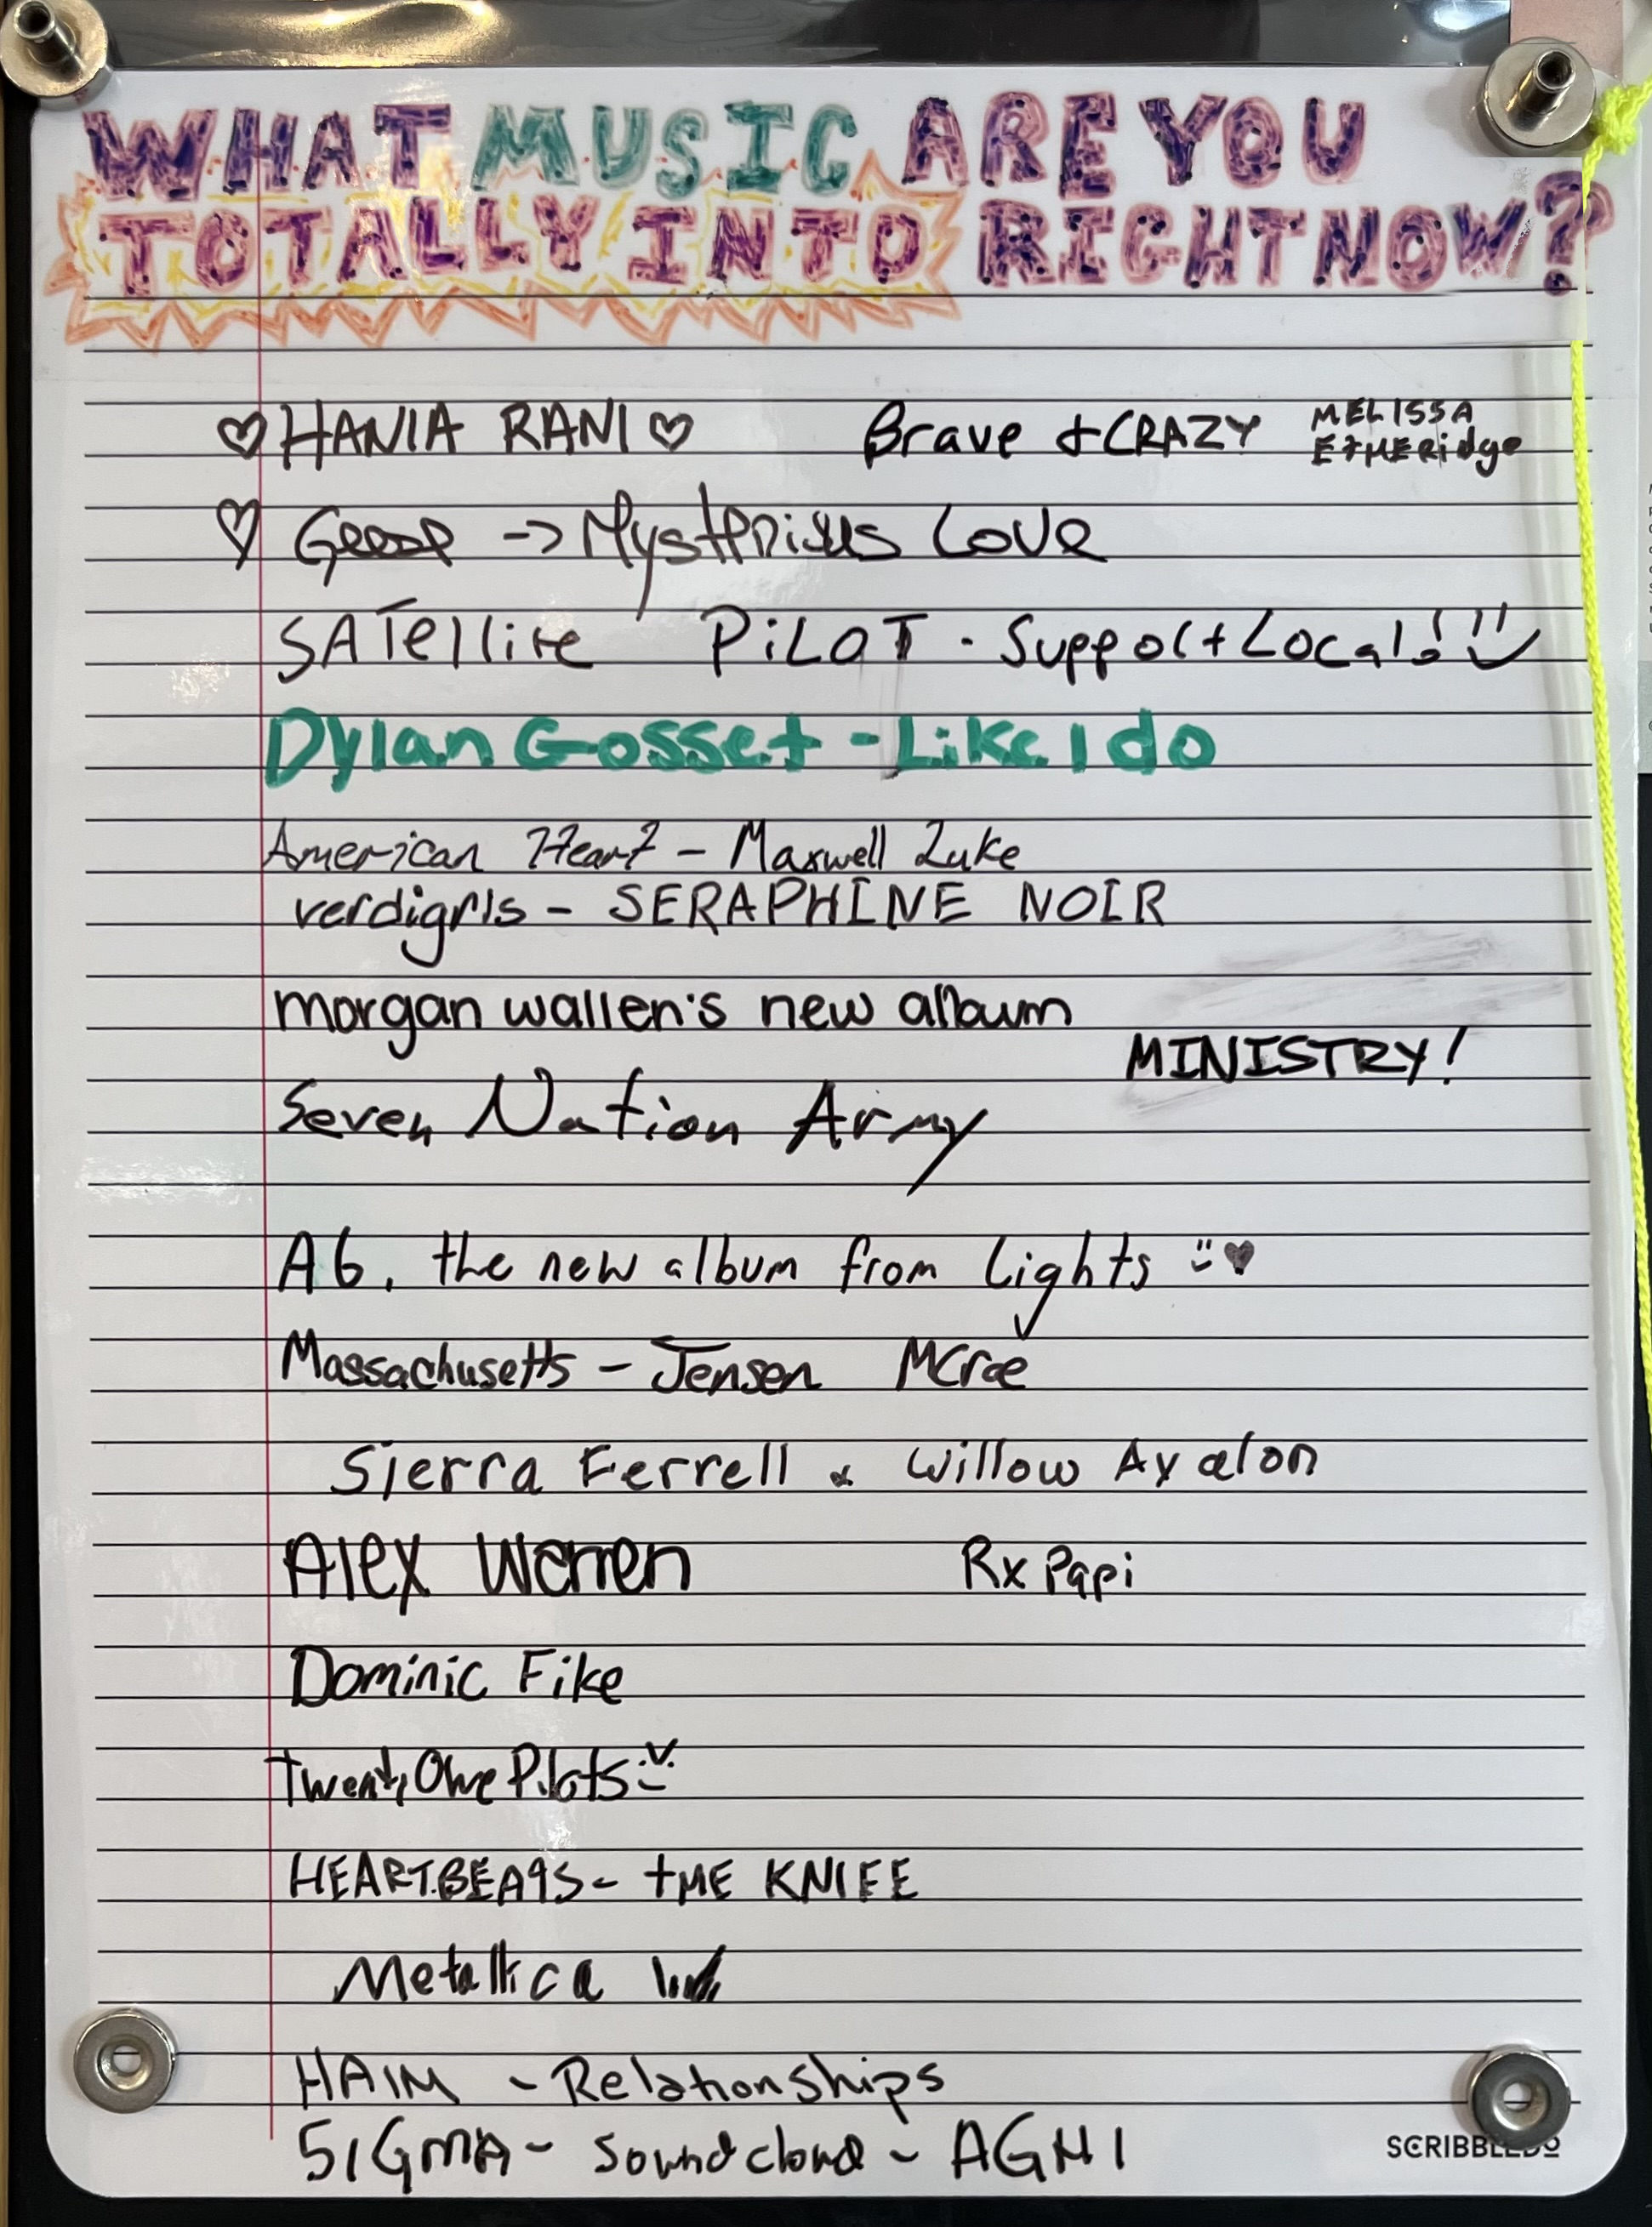 WHAT MUSIC ARE YOU
TOTALLY INTO RIGHT NOW?
♡ HANIA RANI ♡ Brave + CRAZY MELISSA
ETHERidge
♡ Geese -> Mysterious Love
SATellite PiLOT - Support Local! :)
Dylan Gosset - Like I do
American Heart - Maxwell Luke
verdigris - SERAPHINE NOIR
morgan wallen's new album
MINISTRY!
Seven Nation Army
A6, the new album from Lights :) ♥
Massachusetts - Jensen McRae
Sierra Ferrell & Willow Avalon
Alex Warren Rx Papi
Dominic Fike
Twenty One Pilots
HEARTBEATS - tHE KNIFE
Metallica
HAIM - Relationships
SIGMA - Soundcloud - AGNI
SCRIBBLEDO